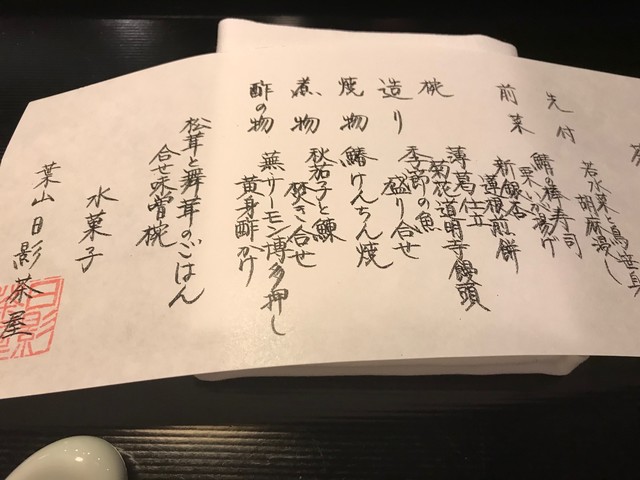 先付
若水菜と鳥笹身
胡麻浸し
前菜
鰆の棒寿司
栗いが揚げ
新銀杏
蓮根煎餅
椀
薄葛仕立
菊花道明寺饅頭
造り
季節の魚
盛り合せ
焼物
鰆けんちん焼
煮物
秋茄子と鰊
焚き合せ
酢の物
蕪サーモン博多押し
黄身酢かけ
松茸と舞茸のごはん
合せ味噌椀
水菓子
葉山日影茶屋